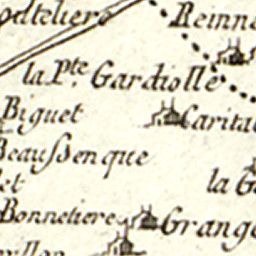 odteliere
Reinne
la Pte. Gardiolle
Biguet
Carita
Beaussenque
et
la G
Bonnetiere
Grange